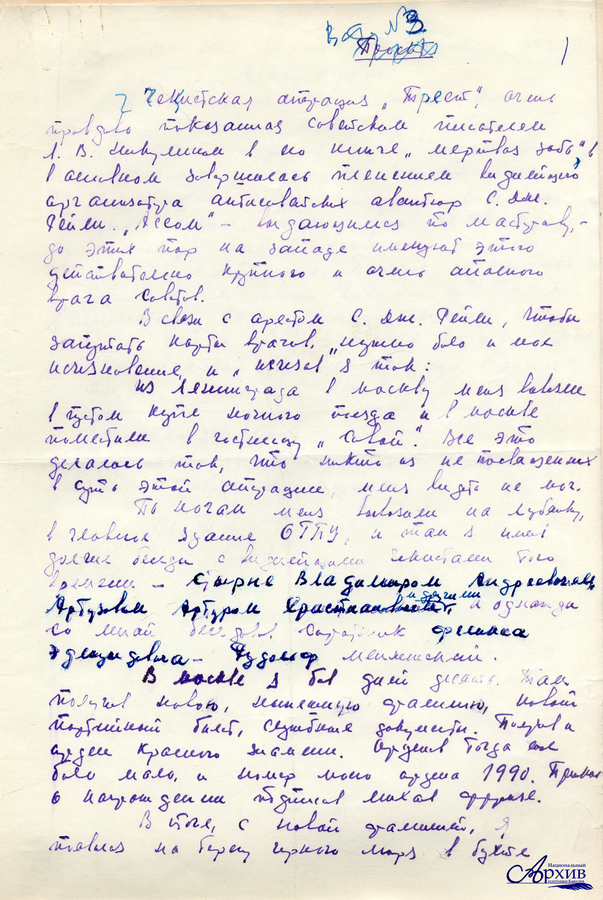 В
№ 3
1
Чекистская операция „Трест“, очень
правдиво показанная советским писателем
Л. В. Никулиным в его книге „мертвая зыбь“ в
в основном завершилась пленением виднейшего
организатора антисоветских авантюр С. Дж.
Рейли. „Ассом“ – выдающимся по мастерству, –
до этих пор на западе именуют этого
действительно крупного и очень опасного
врага советов.
В связи с арестом С. Дж. Рейли, чтобы
запутать карты врагов, нужно было и мое
исчезновение, и „исчез“ я так:
из Ленинграда в Москву меня вывезли
в пустом купе ночного поезда и в Москве
поместили в гостиницу „Савой“. Все это
делалось так, что никто из не посвященных
в суть этой операции, меня видеть не мог.
По ночам меня вывозили на Лубянку,
в главное здание ОГПУ, и там я имел
долгие беседы с виднейшими чекистами того
времени – Стырне Владимиром Андреевичем,
Артузовым Артуром Христиановичем, и другими и однажды
со мной беседовал соратник Феликса
Эдмундовича – Рудольф Менжинский.
В Москве я был дней десять. Там
получил новую, нынешнюю фамилию, новый
партийный билет, служебные документы. Получил и
орден Красного знамени. Орденов тогда еще
было мало, и номер моего ордена 1990. Приказ
о награждении подписал Михаил Фрунзе.
В итоге, с новой фамилией, я
появился на берегу черного моря в бухте
Национальный
Архив
Республики Карелия